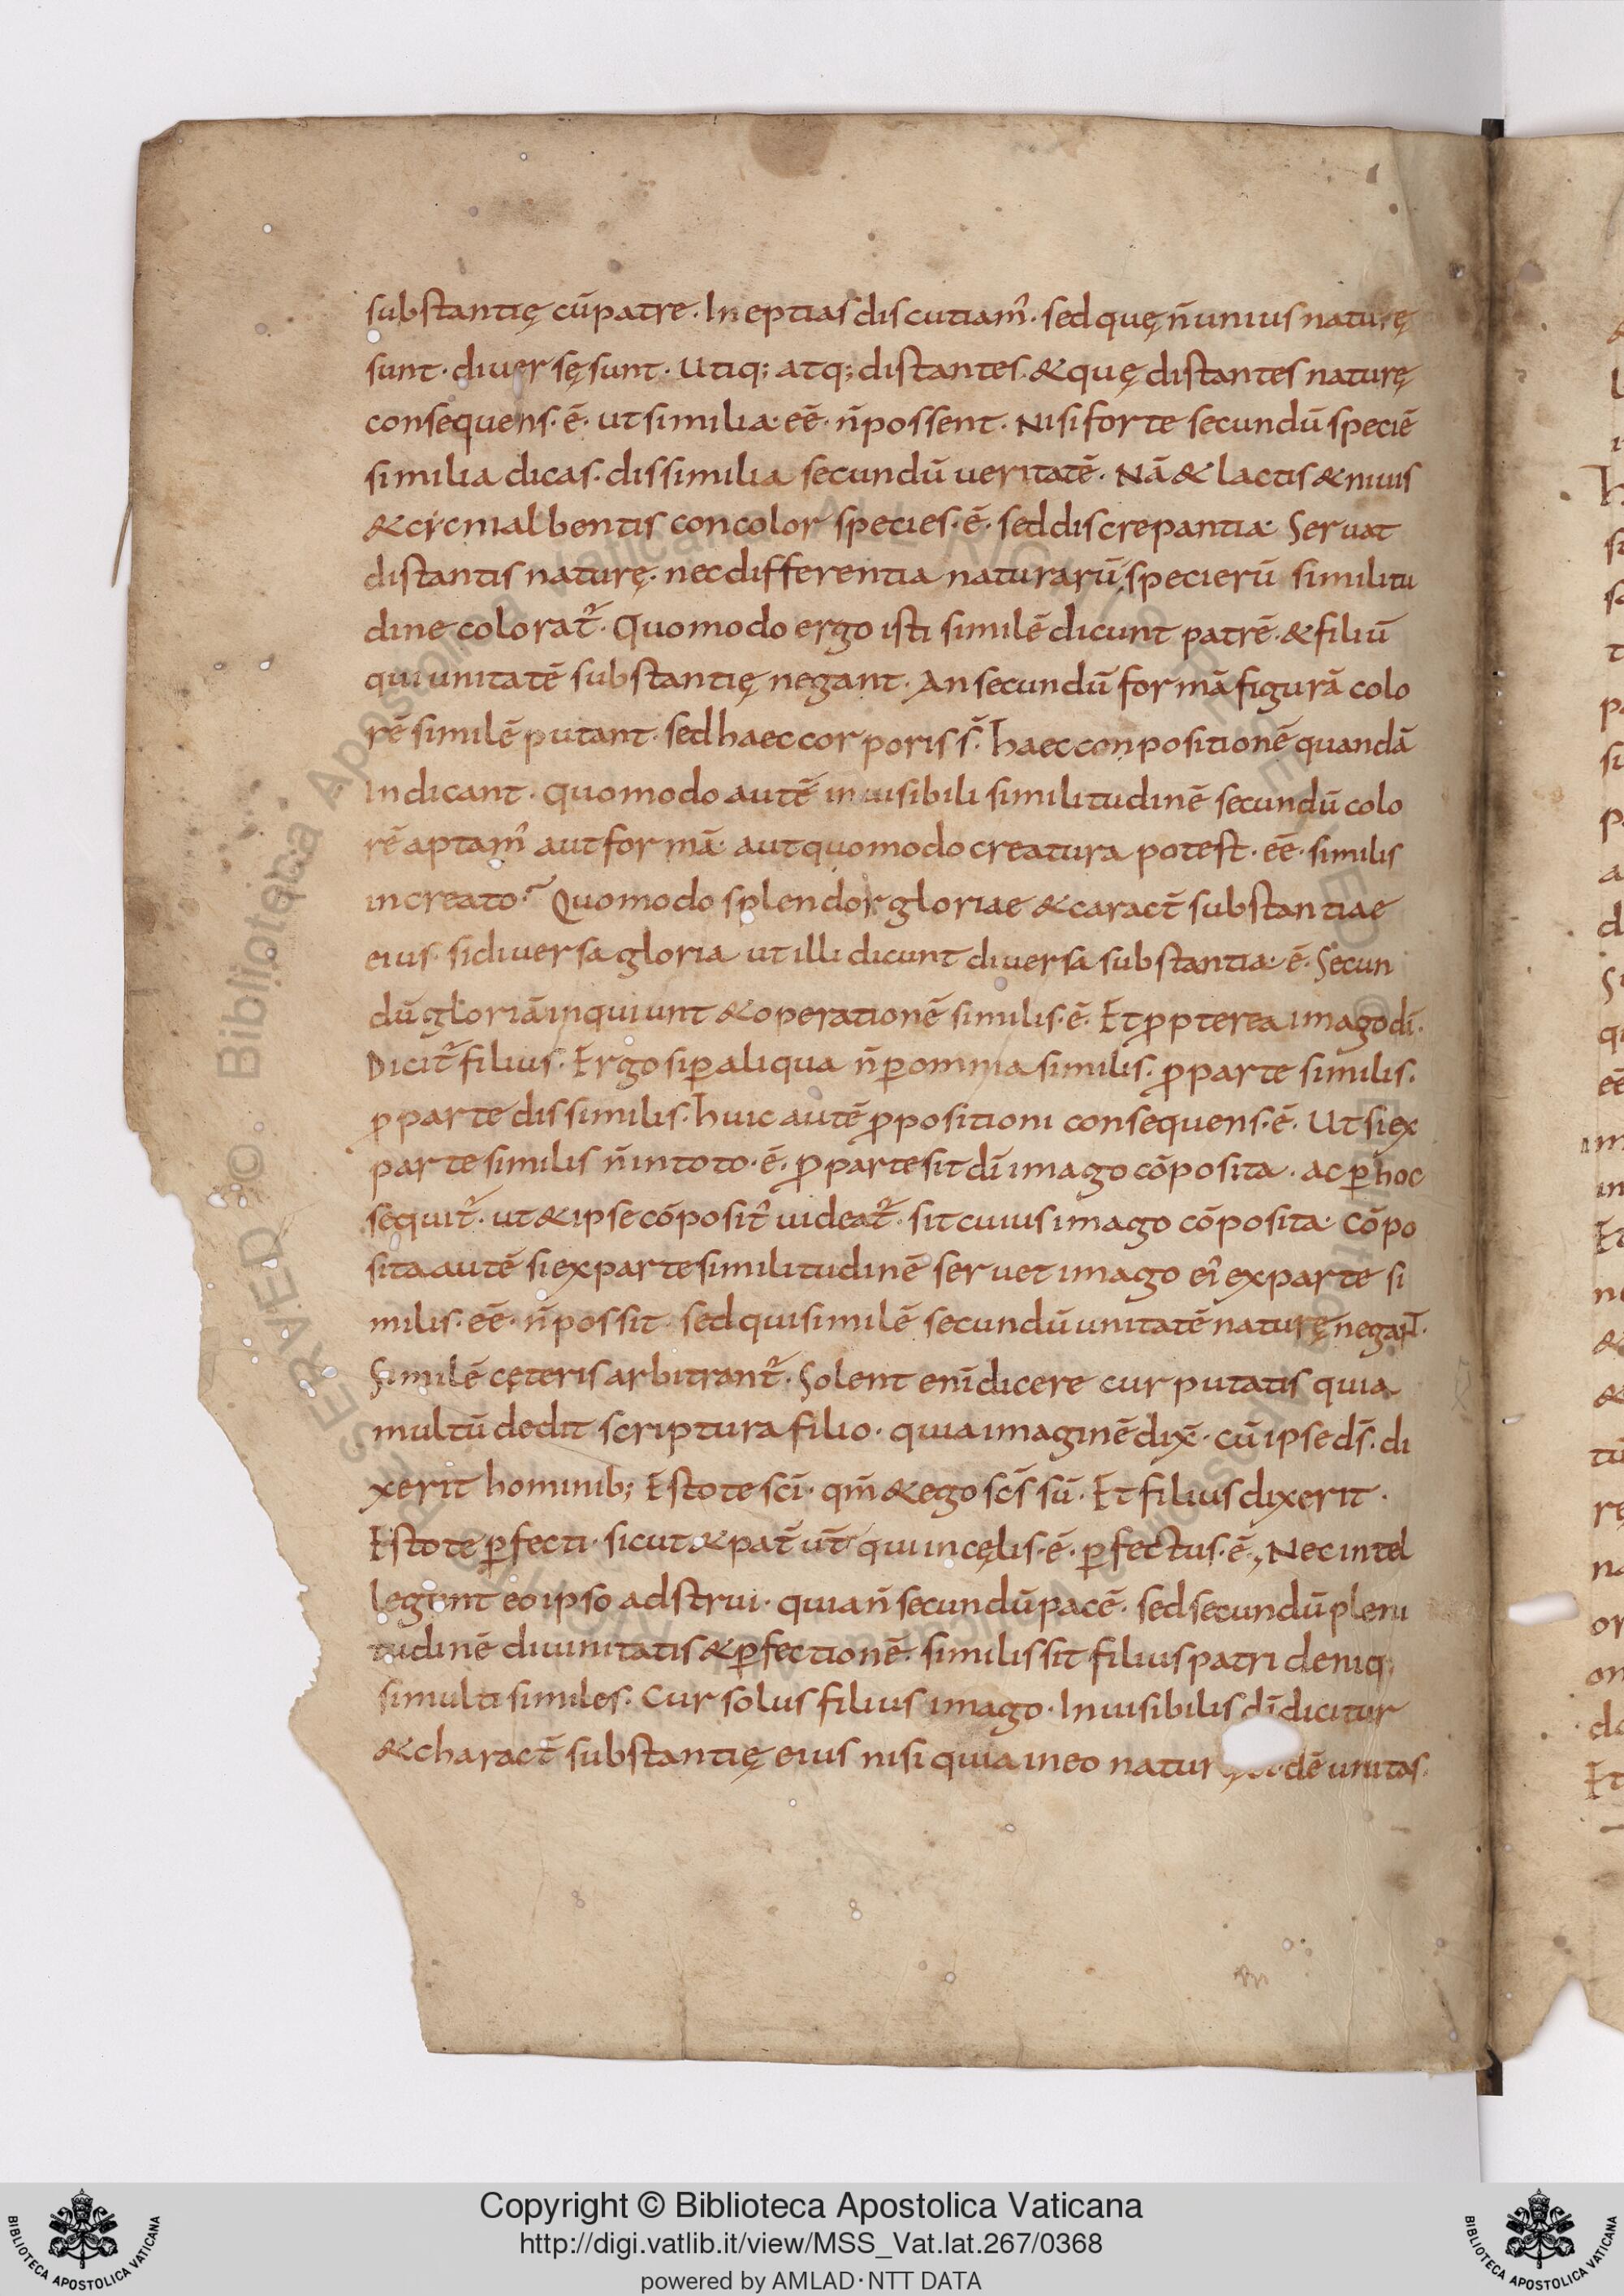 substantię cū patre. Ineptias discutiam᾿. sed quę n̄ unius naturę
sunt. diversę sunt. Utiq; atq; distantes. & quę distantes naturę
consequens. ē. ut similia. eē. n̄ possent. Nisi forte secundū speciē
similia dicas. dissimilia secundū veritatē. Nā & lactis & nivis
& circni albentis concolor species. ē. sed discrepantia. Servat
distantis naturę. nec differentia naturarū specierū similitu
dine colorat᾿. Quomodo ergo isti similē dicunt patrē. & filiū
qui unitatē substantię negant. An secundū formā figurā colo
rē similē putant. sed haec corporis s̄. haec conpositionē quandā
Indicant. quomodo autē invisibili similitudinē secundū colo
rē aptam᾿ aut formā. aut quomodo creatura potest. eē. similis
increato? Quomodo splendor gloriae & caract̄ substantiae
eius. si diversa gloria ut illi dicunt diversa substantia. ē. Secun
dū gloriā inquiunt & operationē similis. ē. Et ꝓpterea imago dī.
Dicit᾿ filius. Ergo si ꝑ aliqua n̄ ꝑ omnia similis. ꝓ parte similis.
ꝓ parte dissimilis. huic autē ꝓpositioni consequens. ē. Ut si ex
parte similis n̄ in toto. ē. ꝓ parte sit dī imago cōposita. ac ꝑ hoc
sequit᾿. ut & ipse cōposit᾿ videat᾿. sit cuius imago cōposita. Cōpo
sita autē si ex parte similitudinē servet imago ei᾿ ex parte si
milis. eē. n̄ possit. sed qui similē secundū unitatē naturę negant.
Similē cęteris arbitrant᾿. Solent enī dicere cur putatis quia
multū dedit scriptura filio. quia imaginē dix̄. cū ipse ds̄. di
xerit hominib; Estote scī. qm̄ & ego scs̄ sū. Et filius dixerit.
Estote ꝑfecti. sicut & pat̄ ut̄ qui in cęlis. ē. ꝑfectus. ē., Nec intel
legunt eo ipso adstrui. quia n̄ secundū pacē. sed secundū pleni
tudinē divinitatis & ꝑfectionē. similis sit filius patri deniq;
si multi similes. Cur solus filius imago. Invisibilis dī dicitur
& charact̄ substantię eius nisi quia in eo natur dē unitas.
Copyright © Biblioteca Apostolica Vaticana
http://digi.vatlib.it/view/MSS_Vat.lat.267/0368
powered by AMLAD·NTT DATA